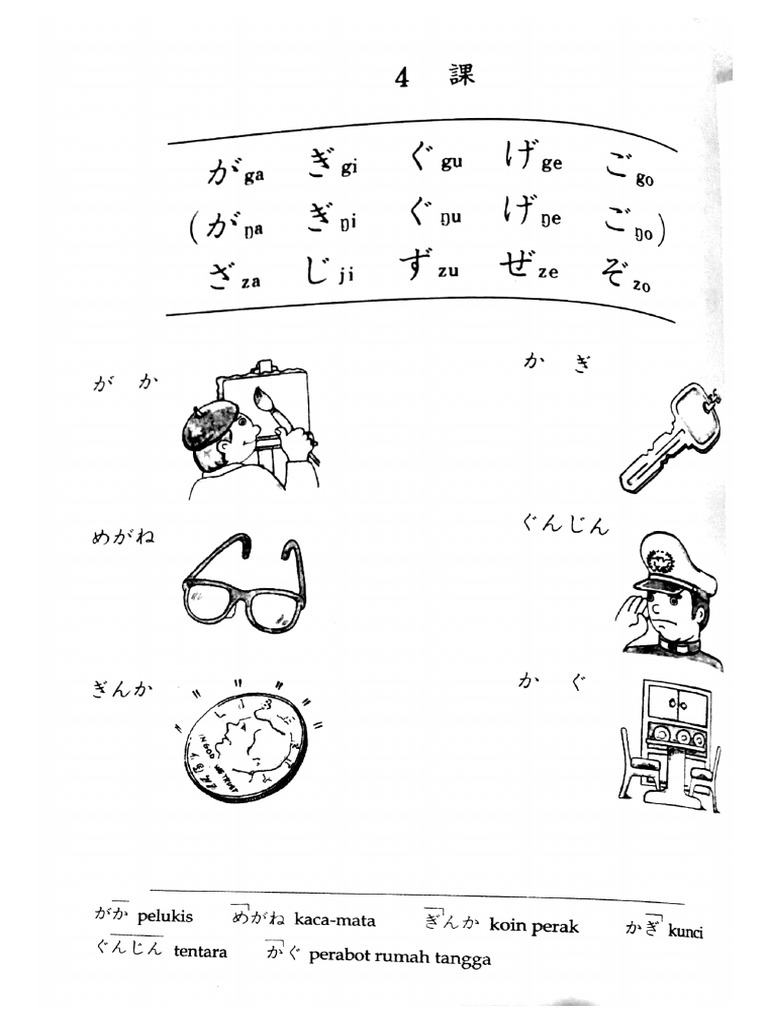 4 課
がga ぎgi ぐgu げge ごgo
(がŋa ぎŋi ぐŋu げŋe ごŋo)
ざza じji ずzu ぜze ぞzo
がか かぎ
めがね ぐんじん
ぎんか かぐ
IN GOD WE TRUST
がか pelukis めがね kaca-mata ぎんか koin perak かぎ kunci
ぐんじん tentara かぐ perabot rumah tangga